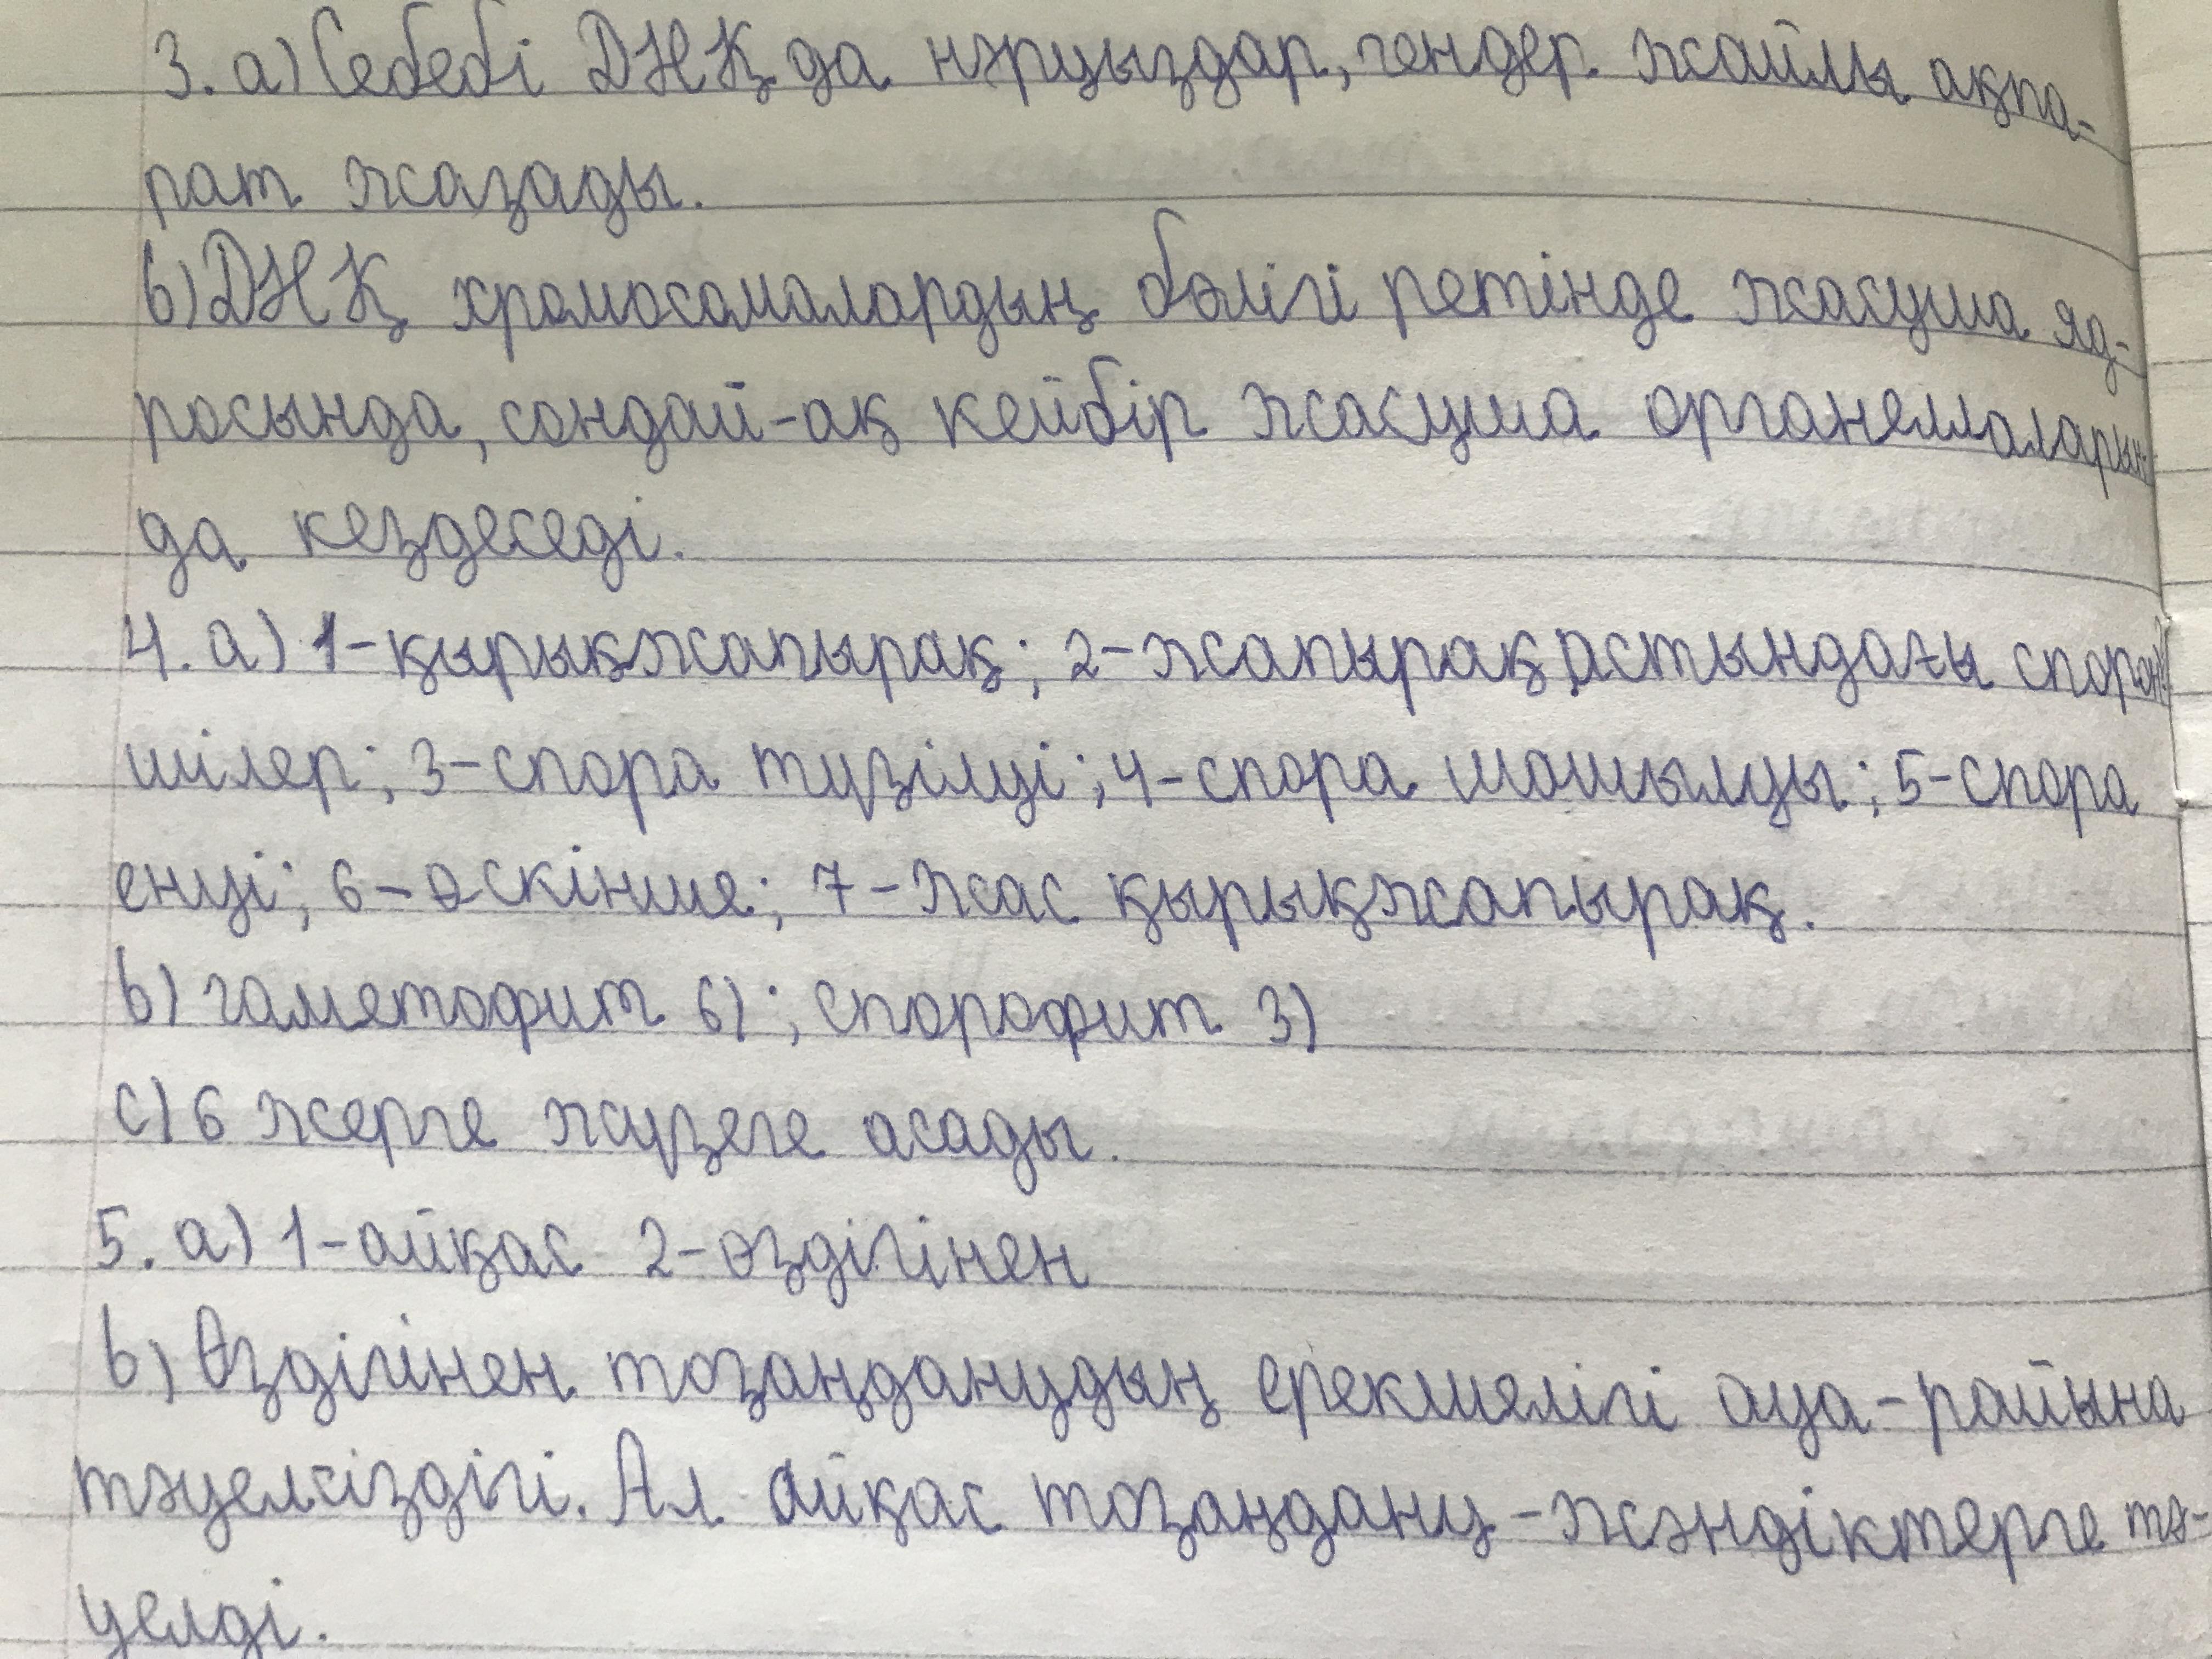 3. а) Себебі ДНҚ да нұрқыздар, гендер жайлы ақпа-
рат жазады.
b) ДНҚ хромосомалардың бөлігі ретінде жасуша яд-
росында, сондай-ақ кейбір жасуша органеллаларын
да кездеседі.
4. а) 1-қырықжапырақ; 2-жапырақ астындағы
шілер; 3-спора түзілуі; 4-спора шашылуы; 5-спора
енуі; 6-өскінше; 7-жас қырықжапырақ.
b) гаметофит 6); спорофит 3)
с) 6 жерге жүзеге асады.
5. а) 1-айқас 2-өздігінен
b) Өздігінен тозаңданудың ерекшелігі ауа-райына
тәуелсіздігі. Ал айқас тозаңдану-жәндіктерге тә-
уелді.